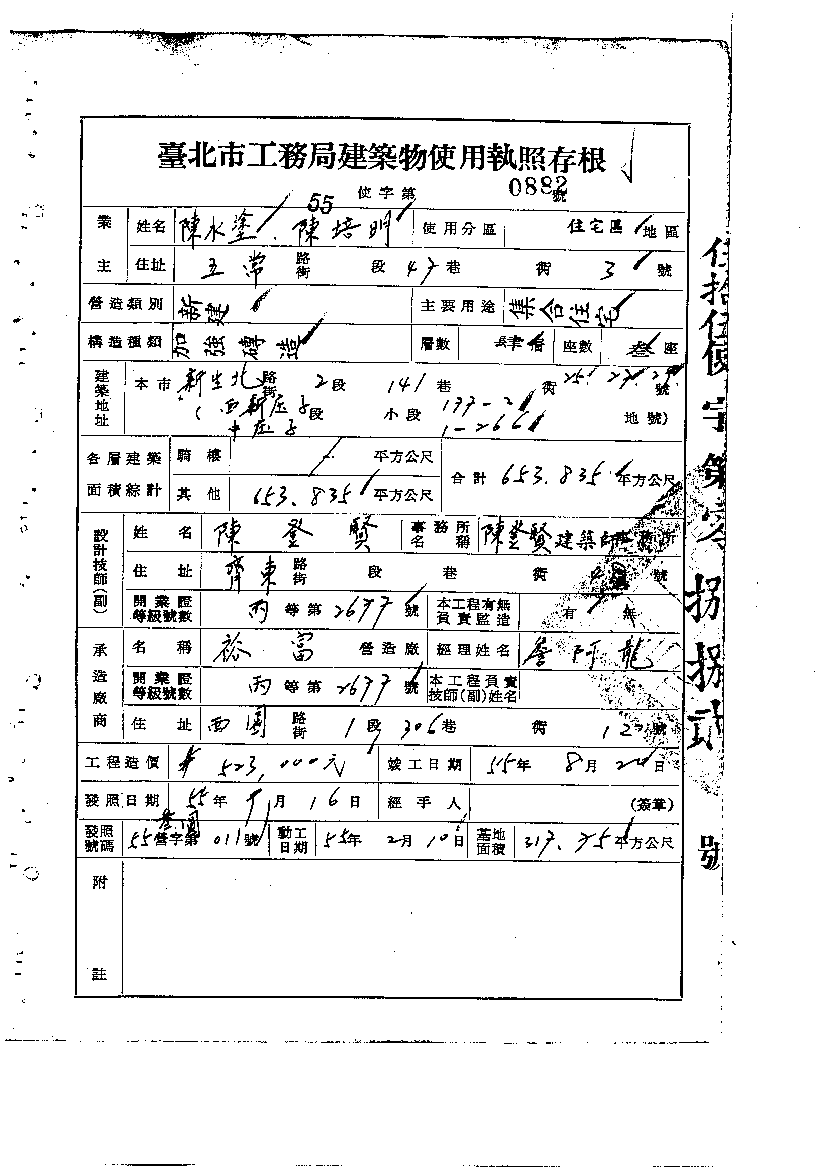 臺北市工務局建築物使用執照存根
55 使字第 0882 號
業主 姓名 陳水塗、陳培明 使用分區 住宅區 地區
住址 五常 路街 段 47巷 衖 3 號
營造類別 新建 主要用途 集合住宅
構造種類 加強磚造 層數 肆層 座數 叁座
建築地址 本市 新生北 路街 2段 141巷 衖 25.27.29. 號
(西新庄子 段 小段 177-21 地號)
中庄子 1-266
各層建築面積綜計 騎樓 平方公尺 合計 653.835 平方公尺
其他 653.835 平方公尺
設計技師(副) 姓名 陳登賢 事務所名稱 陳登賢建築師事務所
住址 齊東 路街 段 巷 衖 號
開業證等級號數 丙等第2677號 本工程有無負責監造 有 無
承造廠商 名稱 裕富 營造廠 經理姓名 詹阿龍
開業證等級號數 丙等第2677號 本工程負責技師(副)姓名
住址 西園 路街 1段 306巷 衖 12 號
工程造價 523,000元 竣工日期 55年 8月 20日
發照日期 55年 9月 16日 經手人 (簽章)
發照號碼 55營字第 011號 動工日期 55年 2月 10日 基地面積 317.75平方公尺
附註
伍拾伍使字第零捌捌貳號